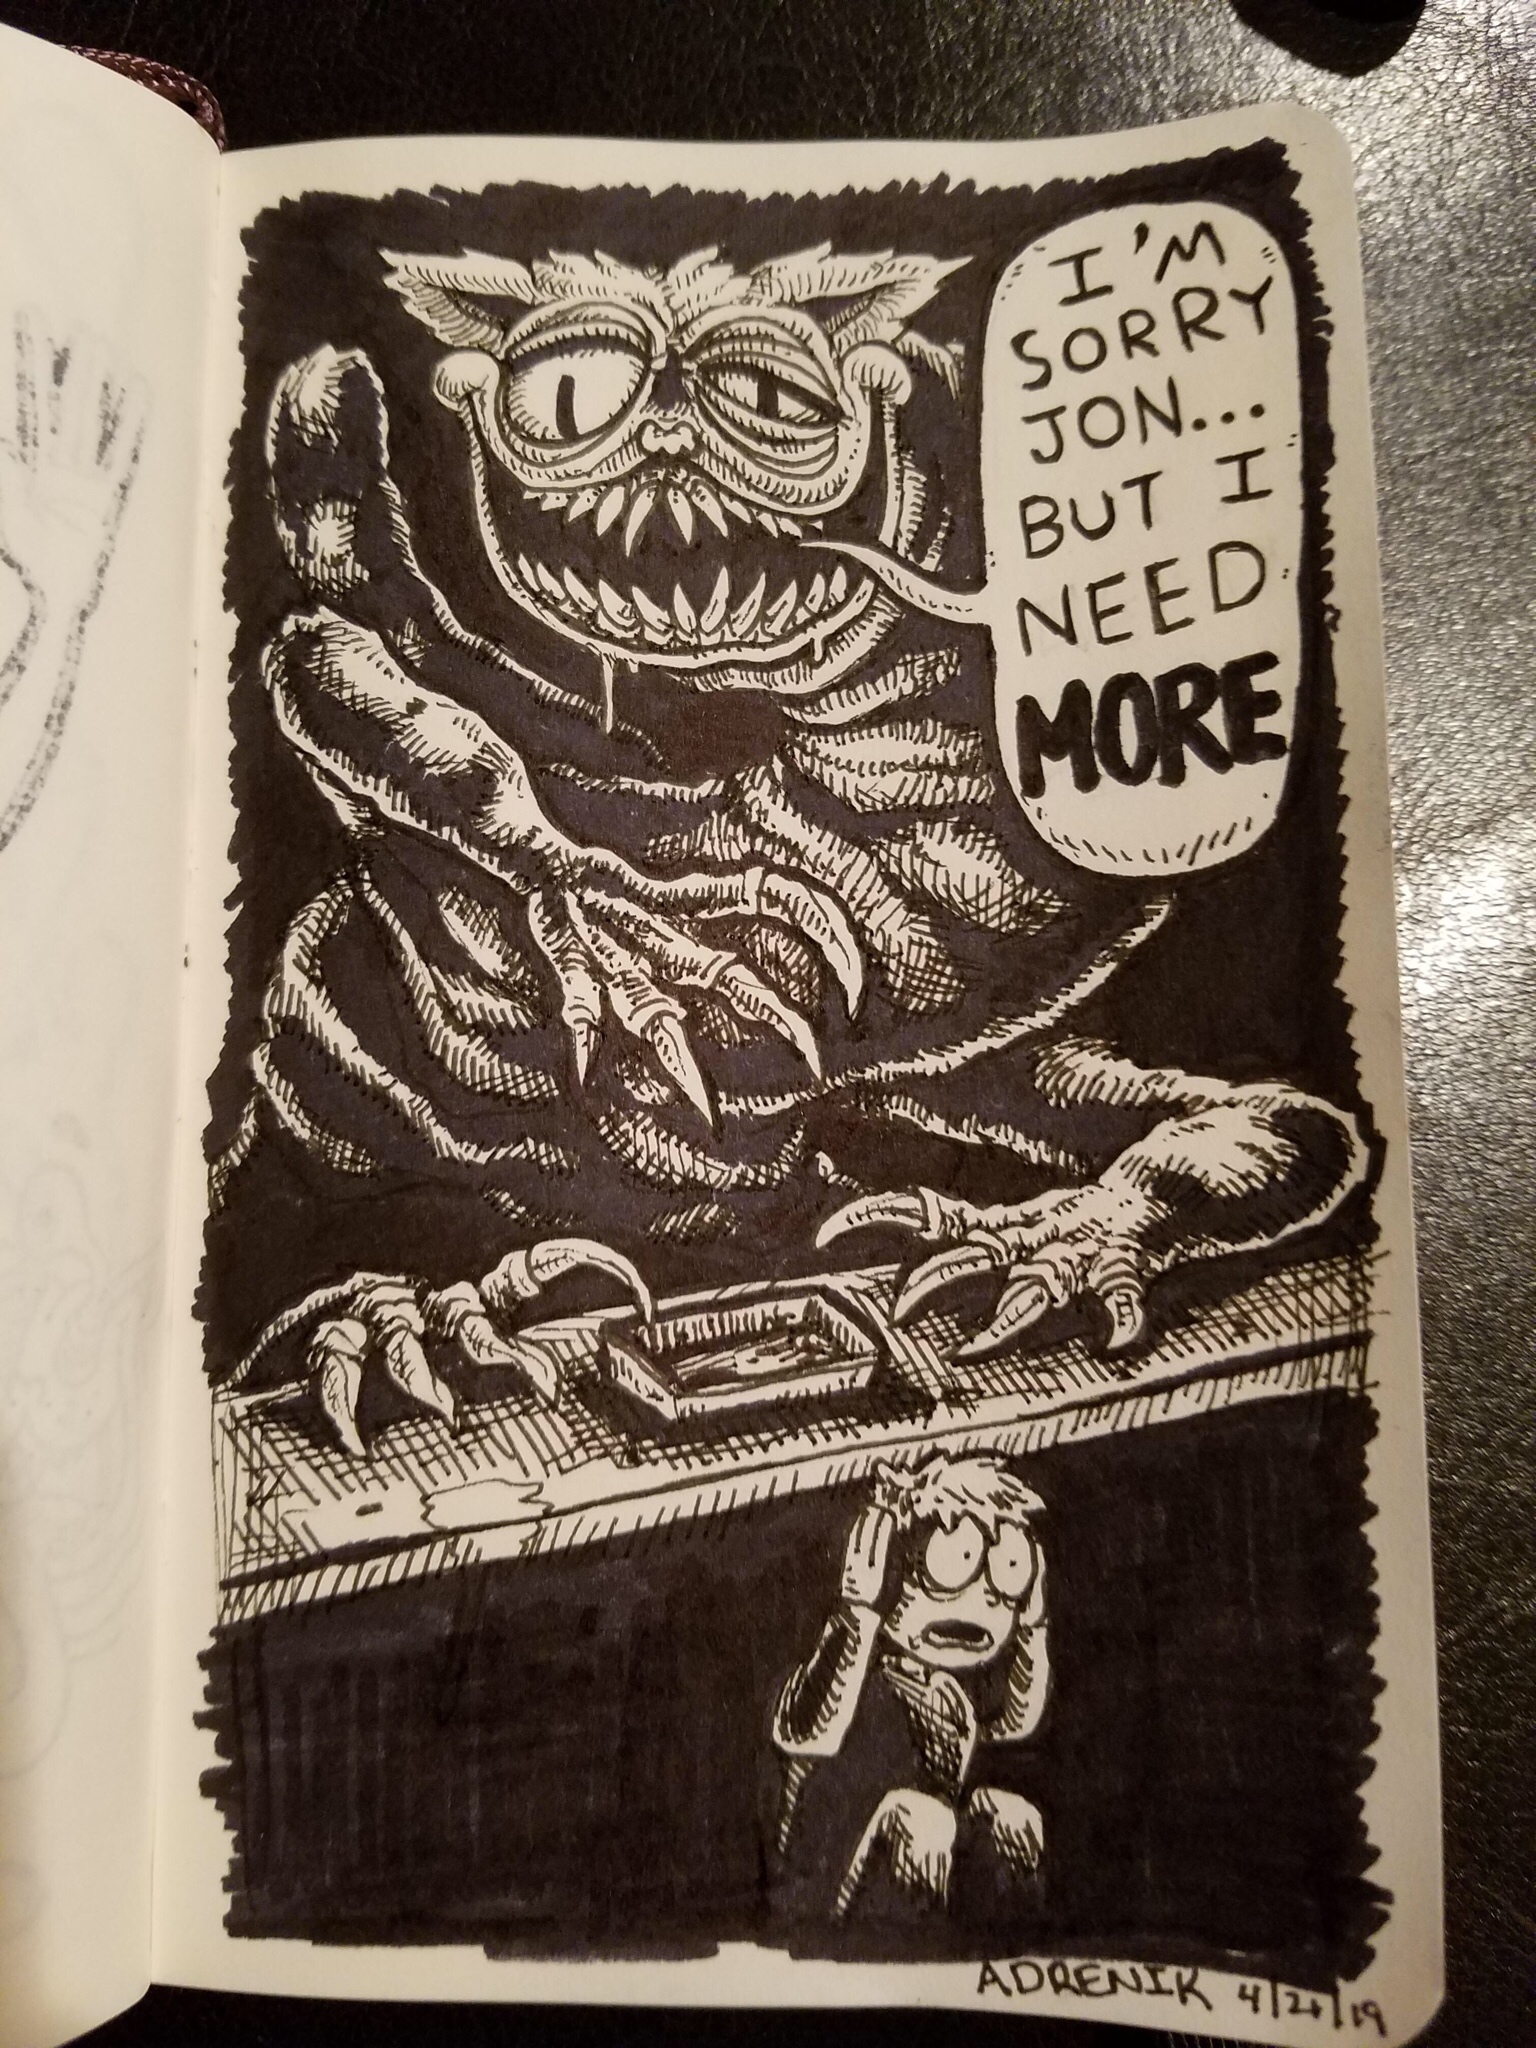 I'M
SORRY
JON...
BUT I
NEED
MORE
ADRENIK 4/21/19